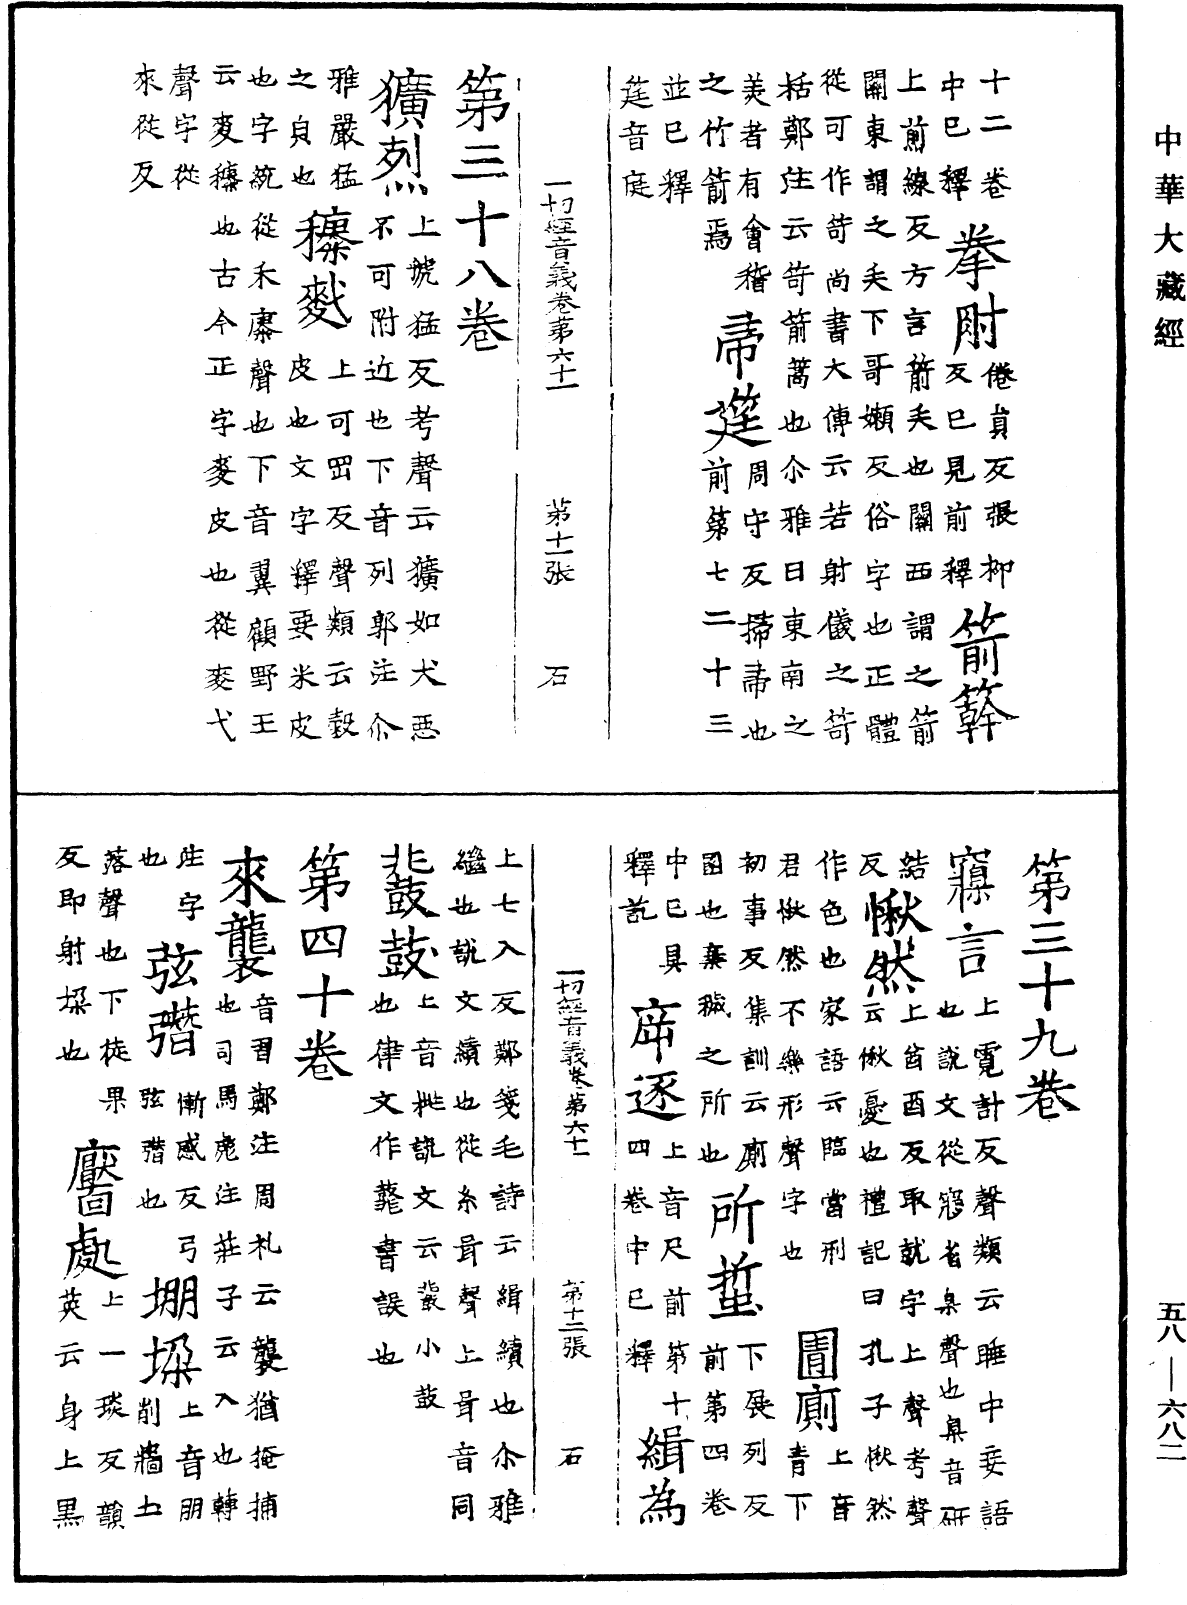 中華大藏經
十二卷
中已釋
拳肘
倦員反張柳
反已見前釋
箭簳
上煎線反方言箭矢也關西謂之箭
關東謂之矢下哥嬾反俗字也正體
從可作笴尚書大傳云若射儀之笴
栝鄭注云笴箭蒿也尒雅曰東南之
美者有會稽
之竹箭焉
帚筳
周守反掃帚也
前第七二十三
並已釋
筳音庭
一切經音義卷苐六十一 苐十一張 石
第三十八卷
獷烈
上虢猛反考聲云獷如犬惡
不可附近也下音列郭注尒
雅嚴猛
之皃也
穬麧
上可罡反聲類云穀
皮也文字釋要米皮
也字統從禾康聲也下音翼顧野王
云麥穬也古今正字麥皮也從麥弋
聲字從
來從夊
第三十九卷
寱言
上霓計反聲類云睡中妄語
也說文從㝱省臬聲也臬音研
結
反
愀然
上酋酉反取就字上聲考聲
云愀憂也禮記曰孔子愀然
作色也家語云臨當刑
君愀然不樂形聲字也
圊廁
上音青下
初事反集訓云廁
圂也棄穢之所也
所蜇
下展列反
前第四卷
中已具
釋訖
庌逐
上音尺前第十
四卷中已釋
緝為
上七入反鄭箋毛詩云緝續也尒雅
繼也說文續也從糸咠聲上咠音同
鼗鼓
上音桃說文云鼗小鼓
也律文作鼗書誤也
一切經音義卷第六十一 第十二張 石
第四十卷
來襲
音習鄭注周礼云襲猶掩捕
也司馬彪注莊子云入也轉
注字
也
弦𢐧
慚感反弓
弦𢐧也
堋垜
上音朋
削牆土
落聲也下徒果
反即射垜也
黶處
上一琰反韻
英云身上黑
五八—六八二